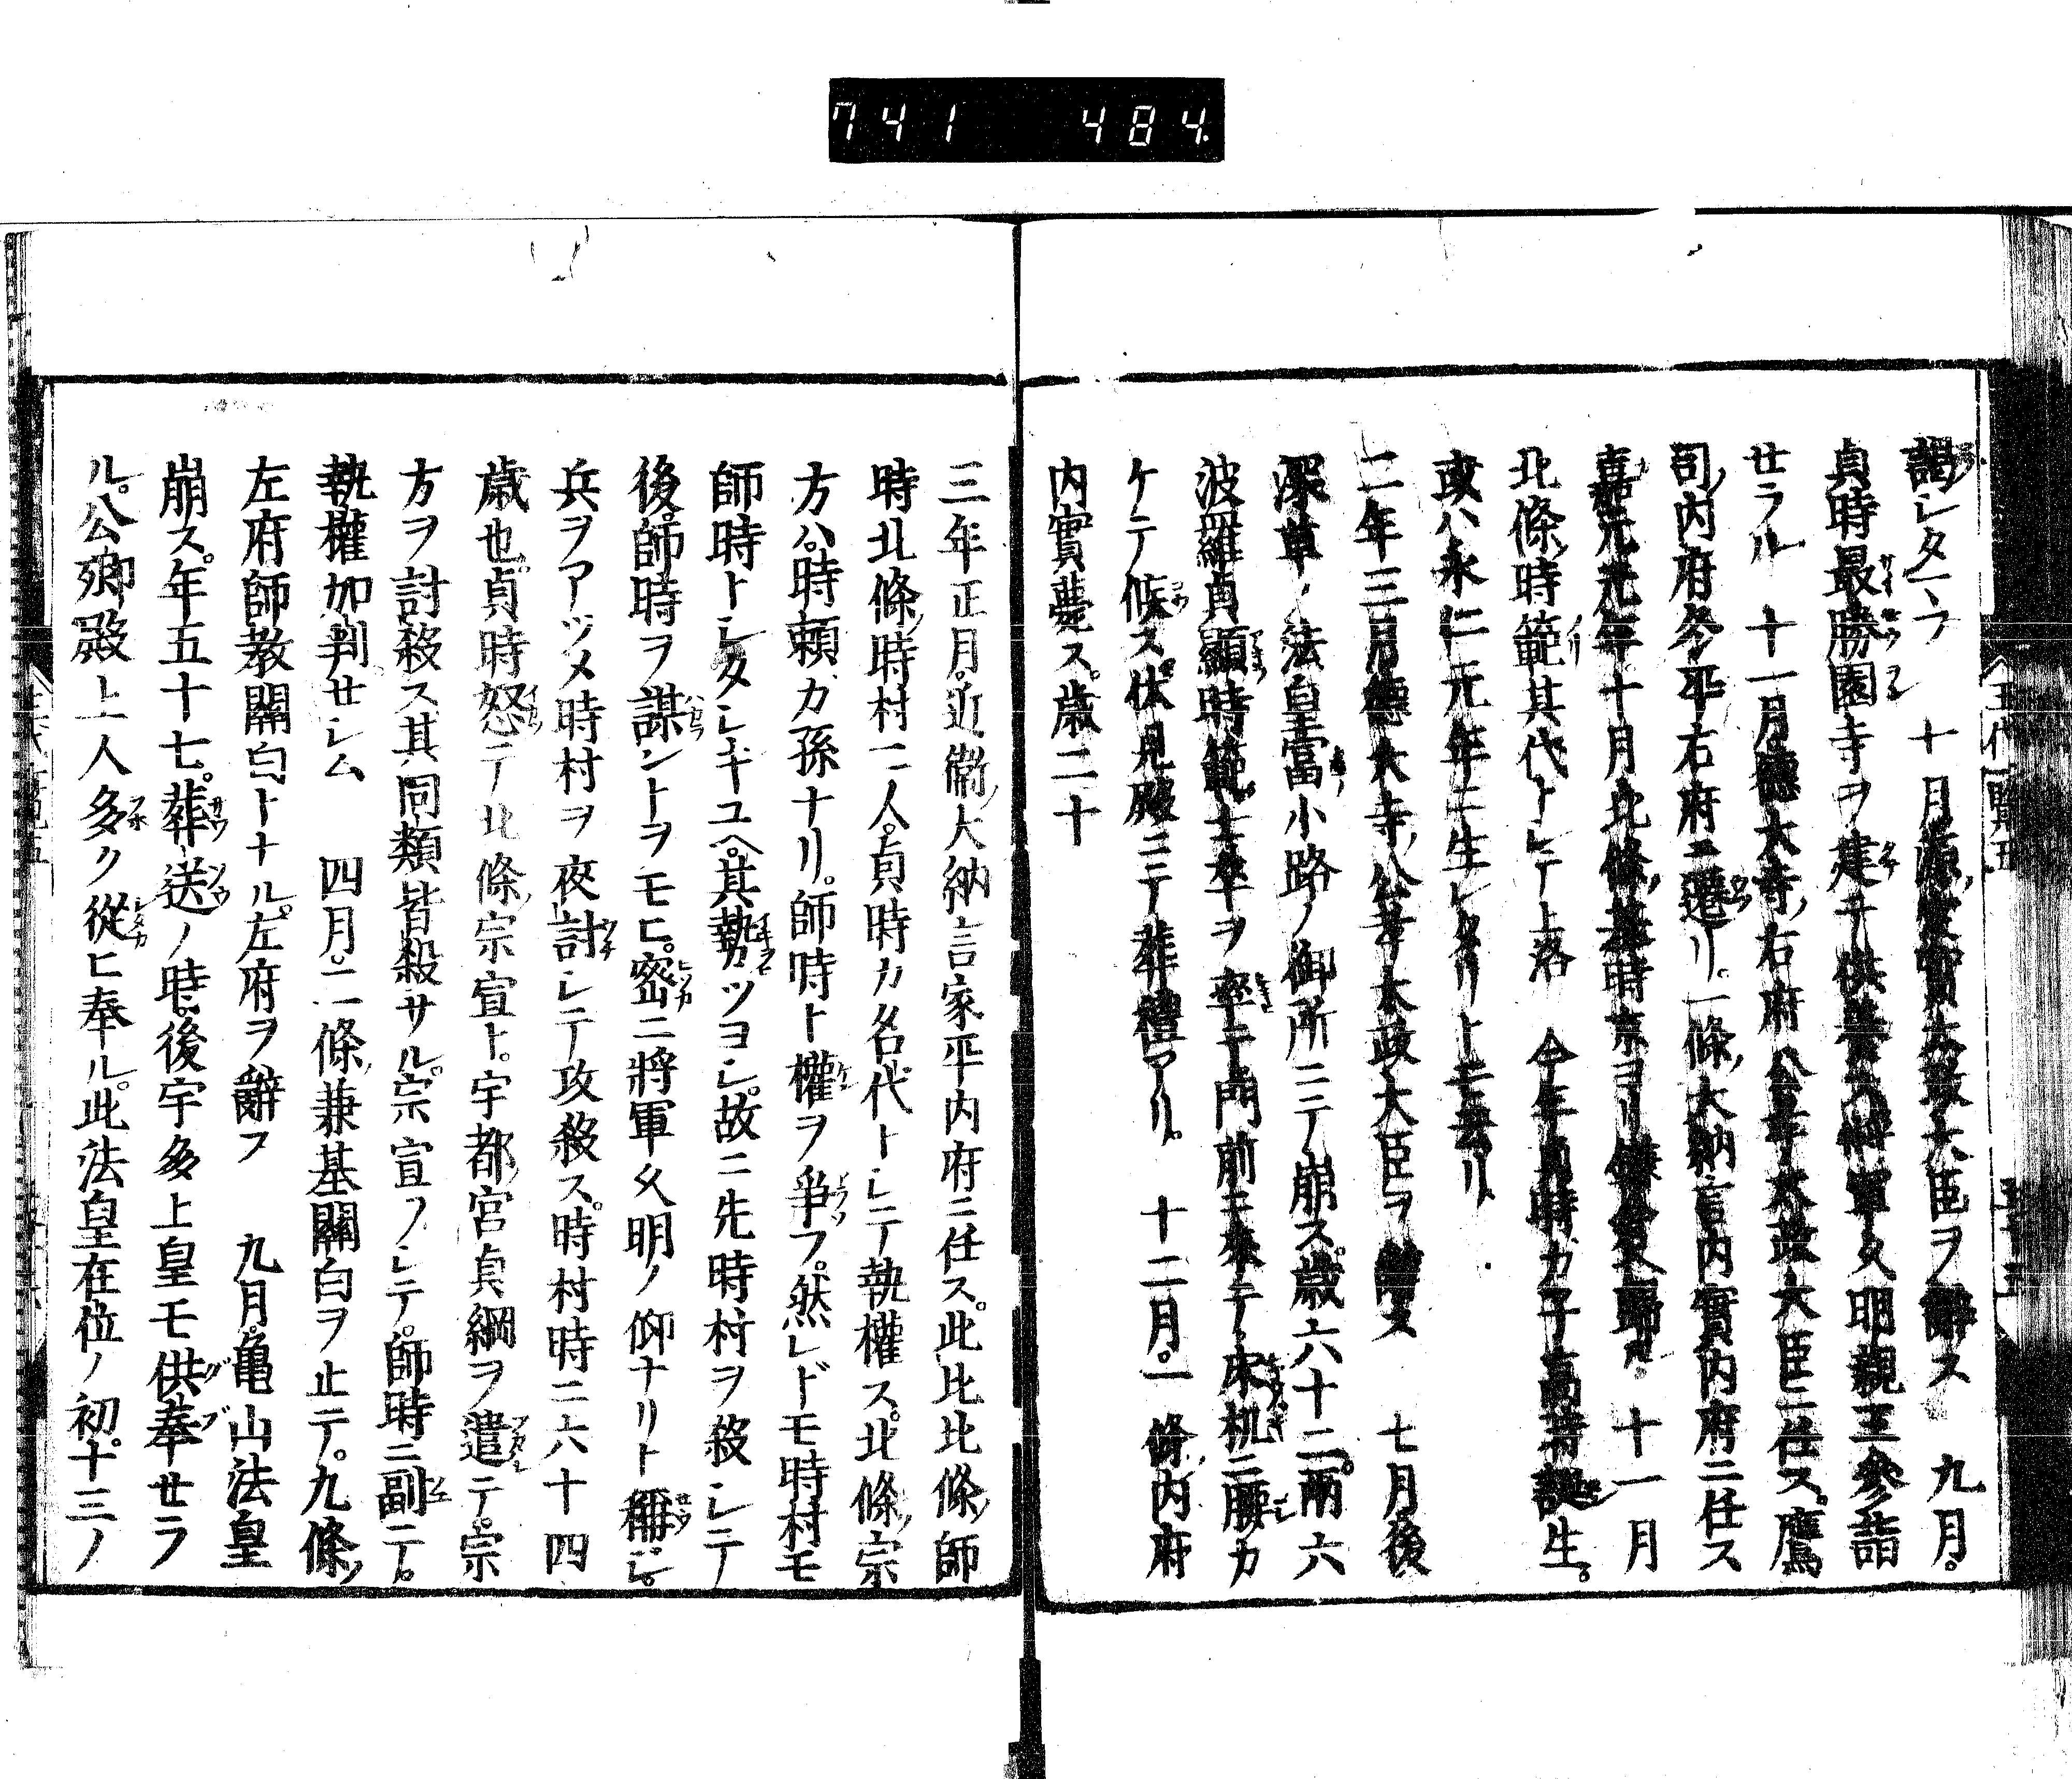 741 484
謁シタマフ 十月源定實太政大臣ヲ辭ス 九月。
貞時最勝園寺ヲ建テ供養ス將軍久明親王參詣
セラル 十一月。德大寺右府公孝太政大臣ニ任ス。鷹
司内府冬平右府ニ遷リ。一條大納言内實内府ニ任ス
嘉元元年。十月北條基時京ヨリ鎌倉ヘ歸ル 十一月
北條時範其代トシテ上洛 今年貞時ガ子高時誕生。
或ハ永仁元年ニ生レタリトモ云リ
二年三月德大寺公孝太政大臣ヲ辭ス 七月後
深草ノ法皇富小路ノ御所ニテ崩ス。歳六十二。兩六
波羅貞顯時範。士卒ヲ率テ門前ニ來テ床机ニ腰カ
ケテ候ス。伏見殿ニテ葬禮アリ。 十二月。一條内府
内實薨ス。歳二十
三年正月。近衞大納言家平内府ニ任ス。此比北條師
時北條時村二人。貞時カ名代トシテ執權ス。北條宗
方ハ。時頼カ孫ナリ。師時ト權ヲ爭フ。然レドモ時村モ
師時トシタシキユヘ。其勢ツヨシ。故ニ先時村ヲ殺シテ
後。師時ヲ謀ントヲモヒ。密ニ將軍久明ノ仰ナリト稱シ。
兵ヲアツメ時村ヲ夜討シテ攻殺ス。時村時ニ六十四
歳也。貞時怒テ北條宗宣ト。宇都宮貞綱ヲ遣テ。宗
方ヲ討殺ス其同類皆殺サル。宗宣ヲシテ。師時ニ副テ。
執權加判セシム 四月。二條兼基關白ヲ止テ。九條
左府師教關白トナル。左府ヲ辭ス 九月。亀山法皇
崩ス。年五十七。葬送ノ時。後宇多上皇モ供奉セラ
ル。公卿殿上人多ク從ヒ奉ル。此法皇在位ノ初。十三ノ